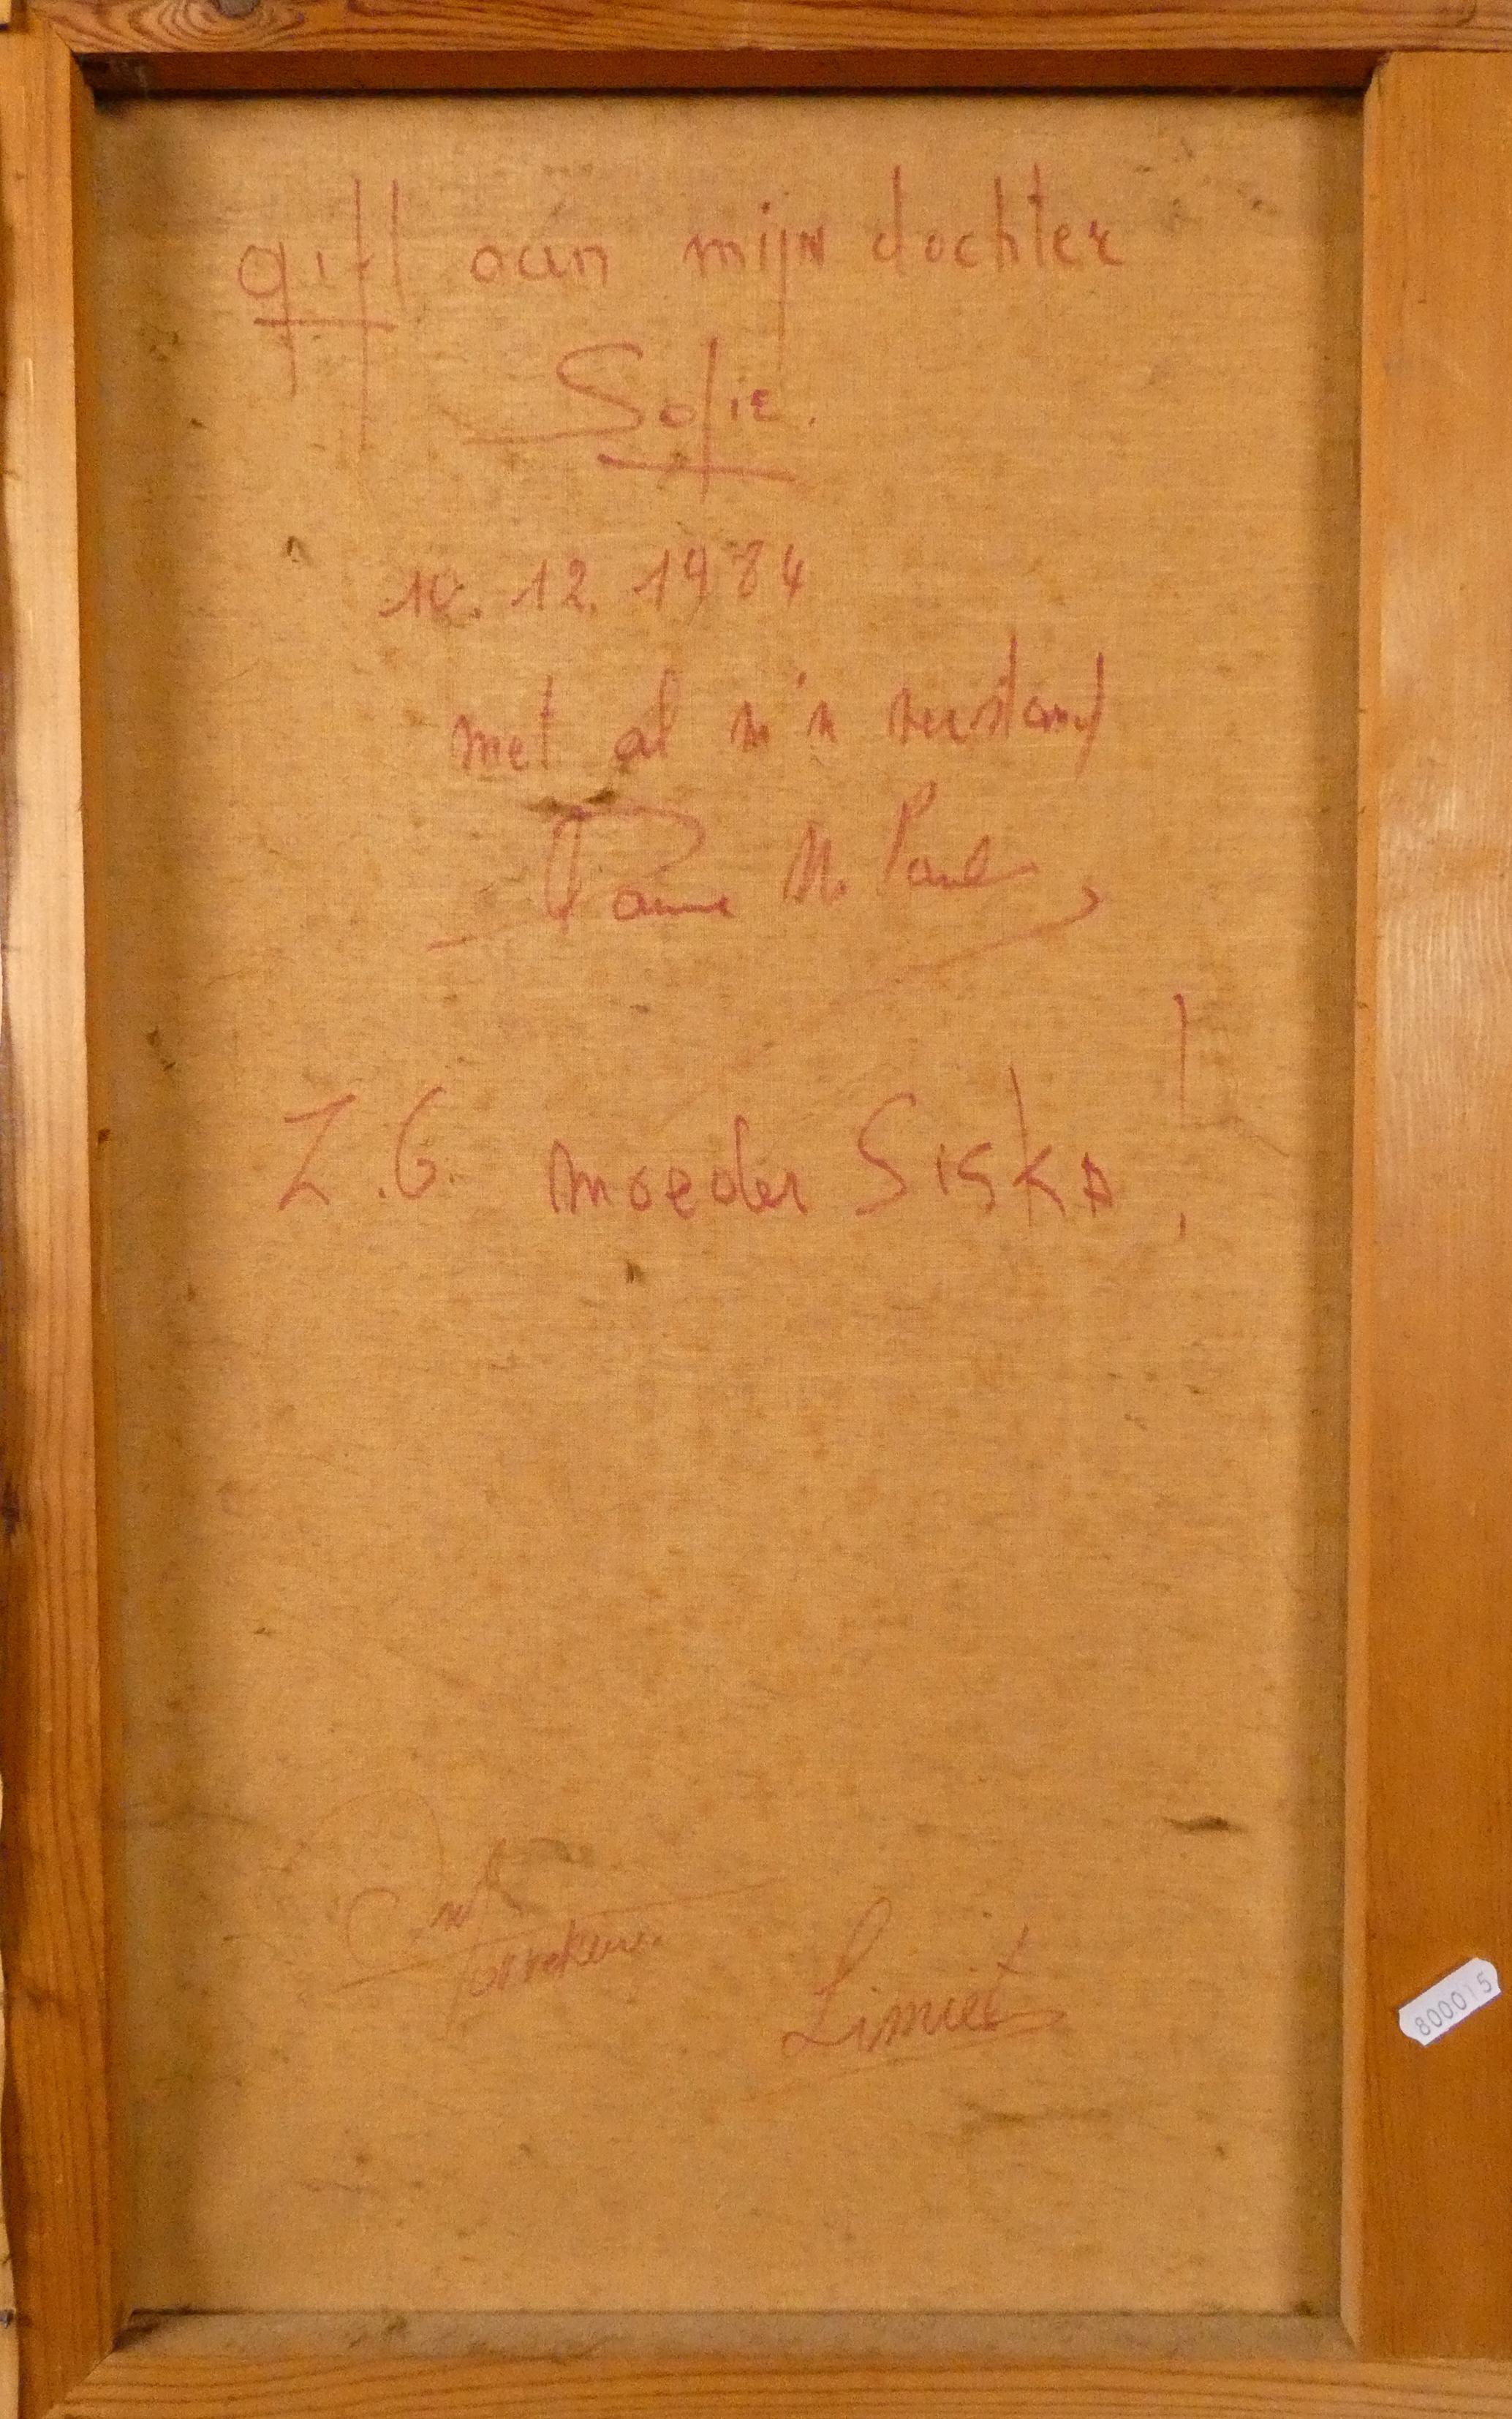 gift aan mijn dochter
Sofie.
10. 12. 1984
met al m'n verstand
M. Paul
Z.G. moeder Siska!
Limiet
800015